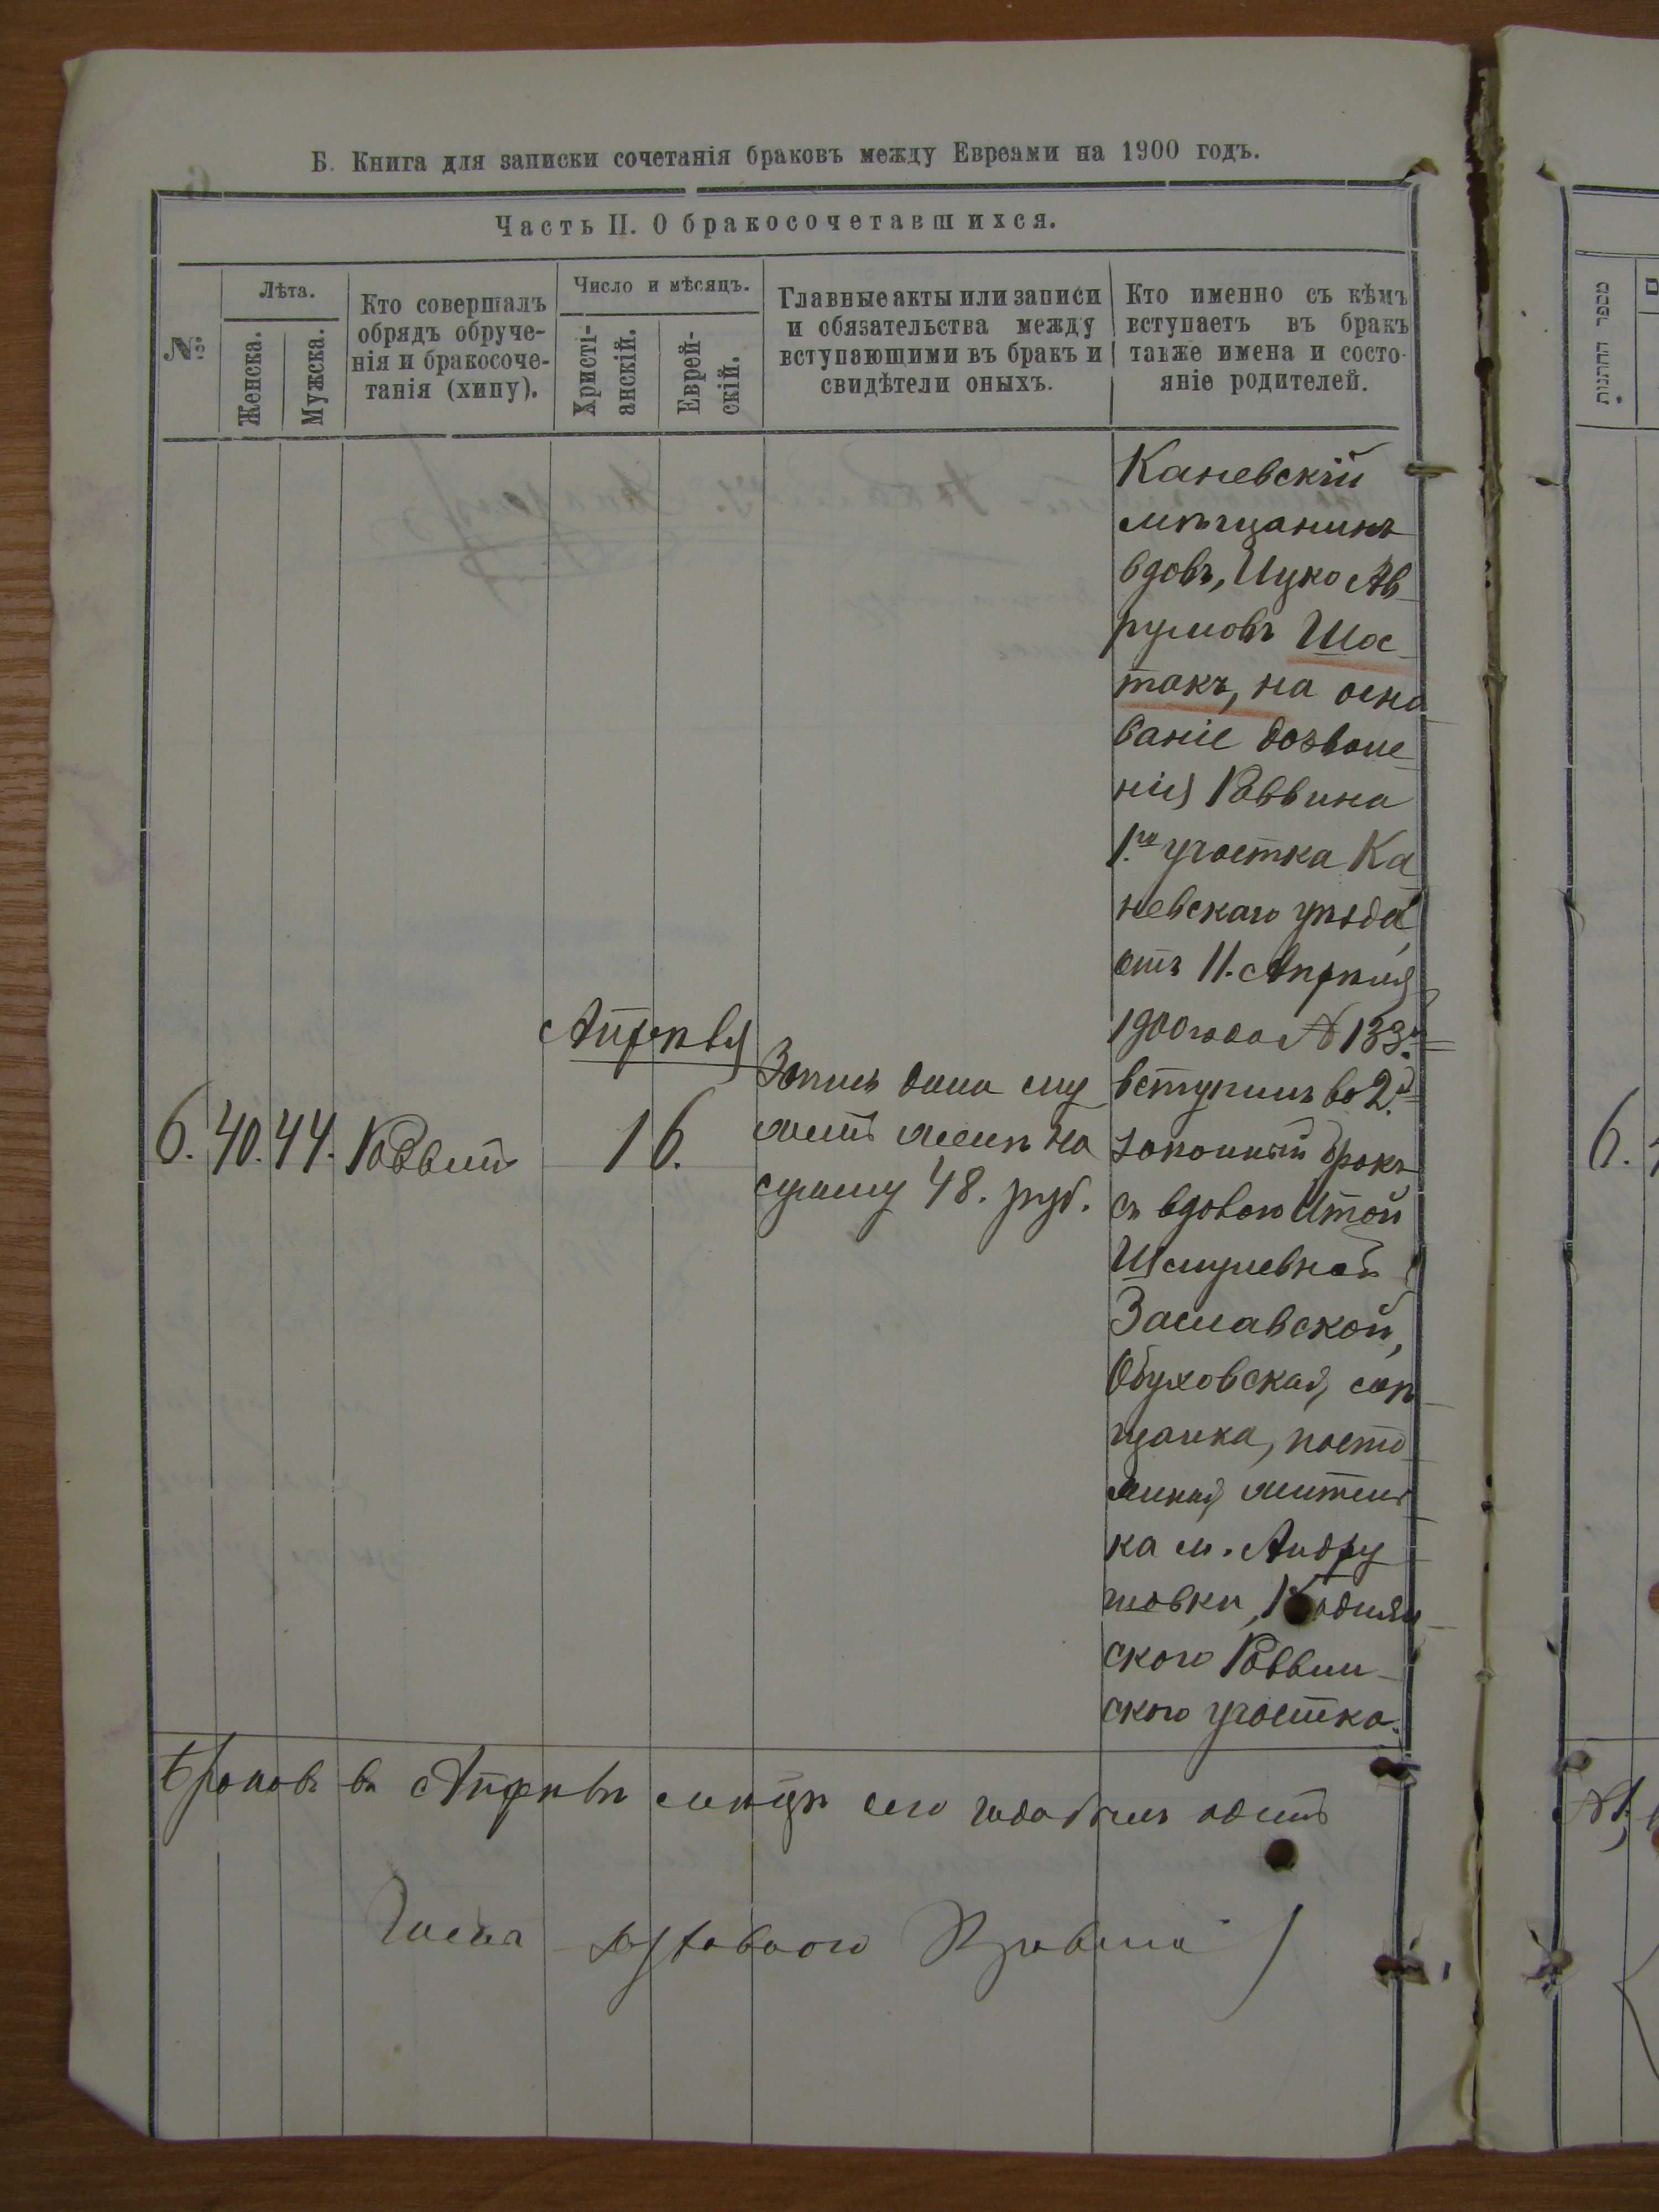 Б. Книга для записки сочетанія браковъ между Евреами на 1900 годъ.
Часть II. О бракосочетавшихся.
№
Лѣта.
Женска.
Мужска.
Кто совершалъ
обрядъ обруче-
нія и бракосоче-
танія (хипу).
Число и мѣсяцъ.
Христі-
анскій.
Еврей-
скій.
Главные акты или записи
и обязательства между
вступающими въ бракъ и
свидѣтели оныхъ.
Кто именно съ кѣмъ
вступаетъ въ бракъ
также имена и состо-
яніе родителей.
6. 40. 44. Раввинъ
Апрѣля
16.
Запись дана му
жемъ женѣ на
сумму 48. руб.
Каневскій
мѣщанинъ
вдовъ, Ицко Ав
румовъ Шос
такъ, на осно
ваніе дозволе
нія Раввина
1.го участка Ка
невскаго уѣзда
отъ 11. Апрѣля
1900 года № 133.
вступилъ во 2.й
законный бракъ
съ вдовою Итой
Шмулевной
Заславской,
Обуховская мѣ
щанка, посто
янная житель
ка м. Андру
шовки,
ского Раввин
ского участка.
Браковъ въ Апрѣлѣ мѣсяцѣ сего года былъ одинъ
Раввина
מספר החתונות
6.
№